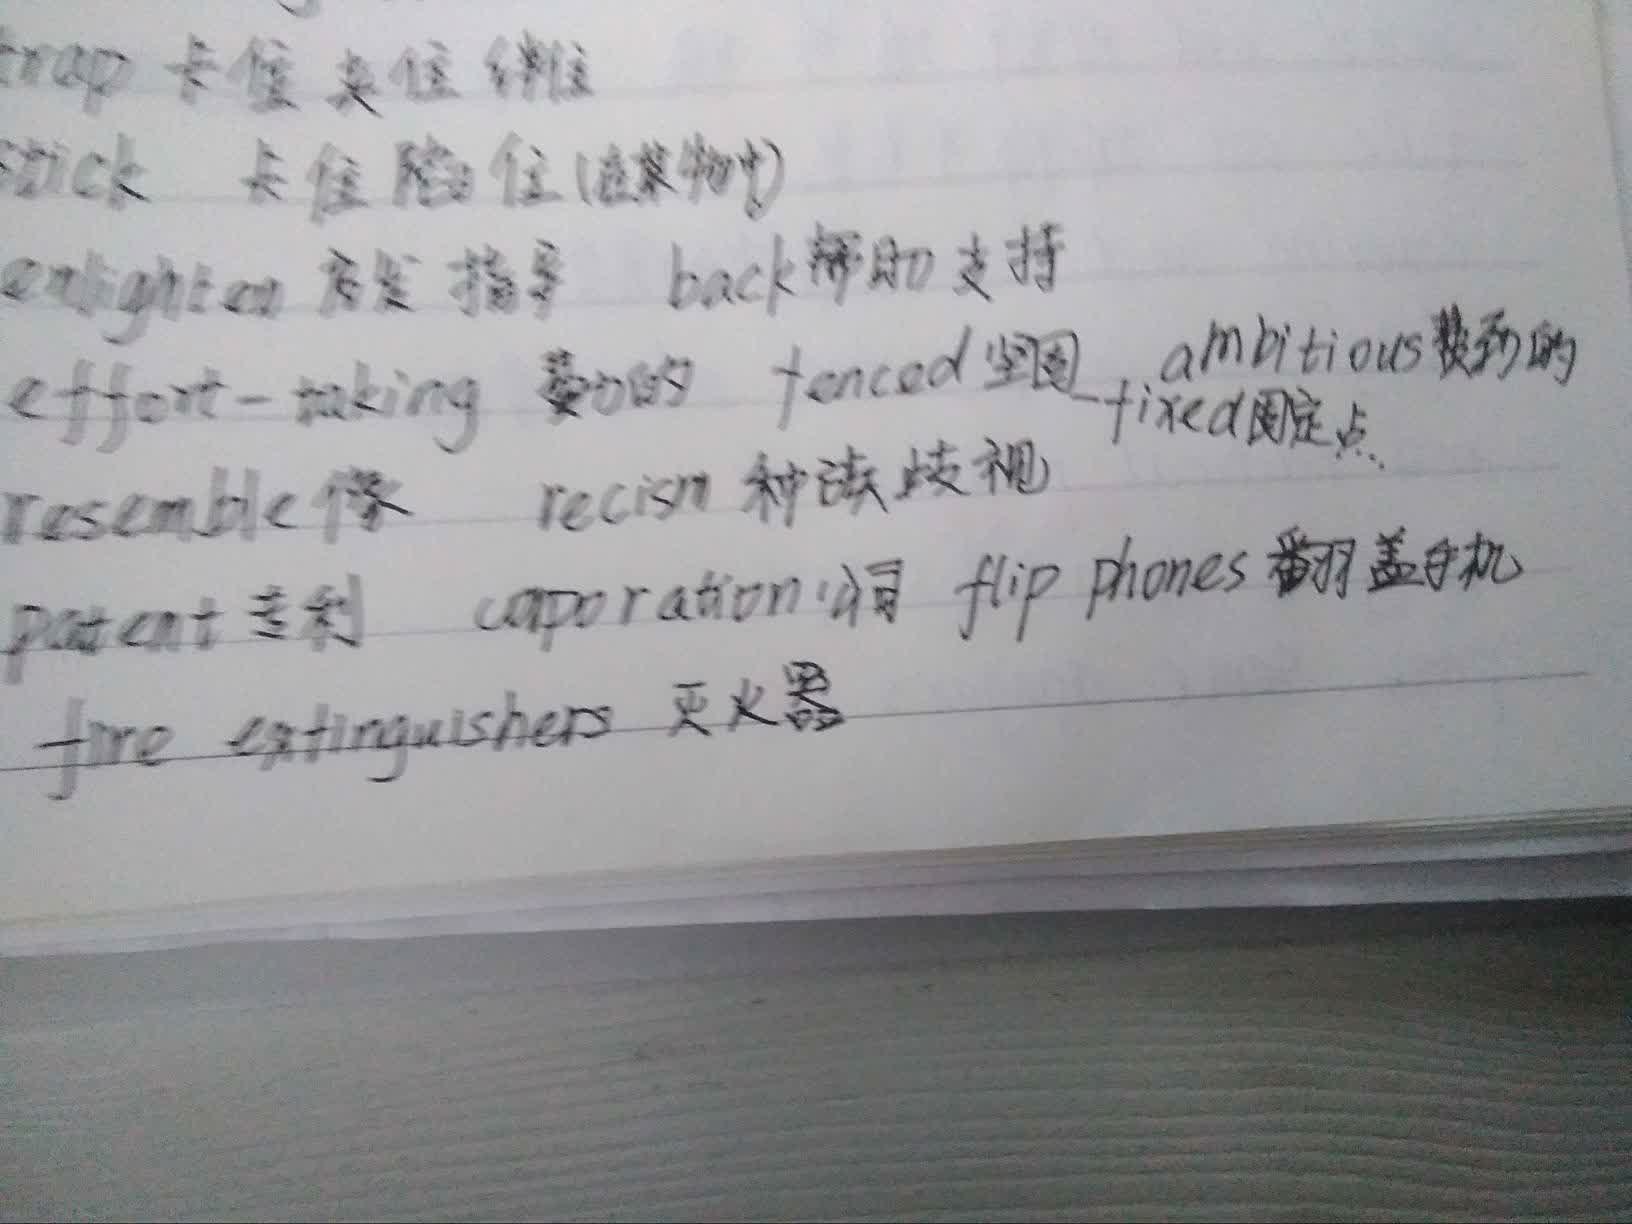 trap 卡住 夹住 绊住
stick 卡住 陷住(在某物中)
enlighten 启发 指导 back帮助 支持
effort-taking 费力的 fenced坚固 ambitious费劲的
fixed固定点
resemble像 recism 种族歧视
patent专利 coporation公司 flip phones 翻盖手机
fire extinguishers 灭火器